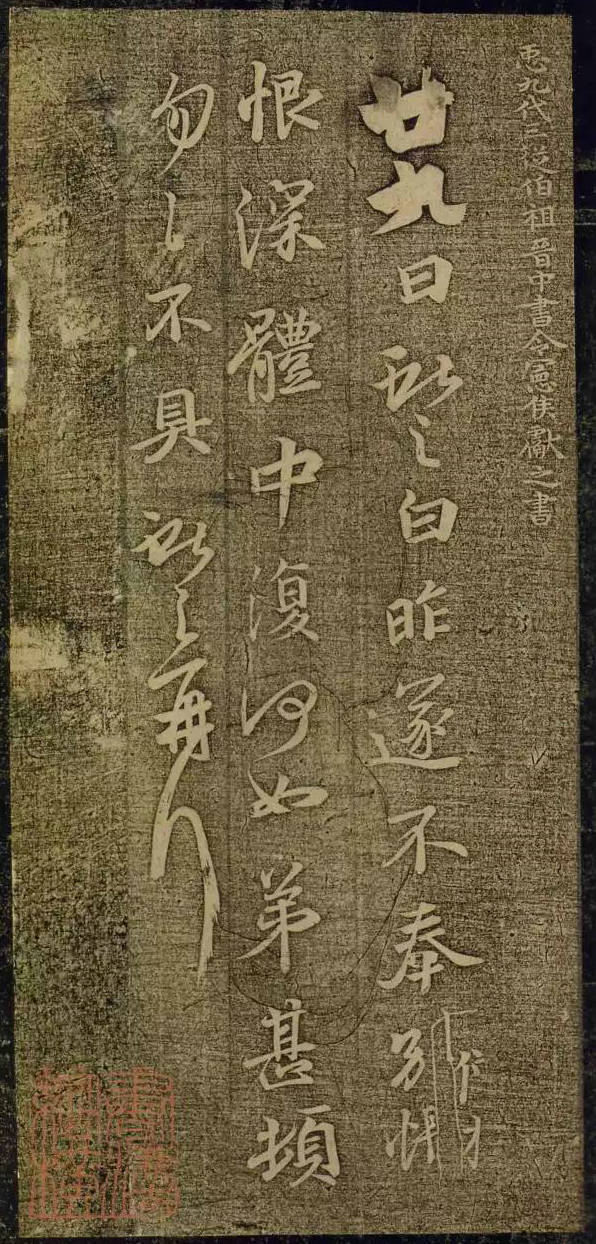 𢘑九代三從伯祖晉中書令憲侯獻之書
廿九日獻之白昨遂不奉別悵
恨深體中復何如弟甚頓
勿勿不具獻之再拜